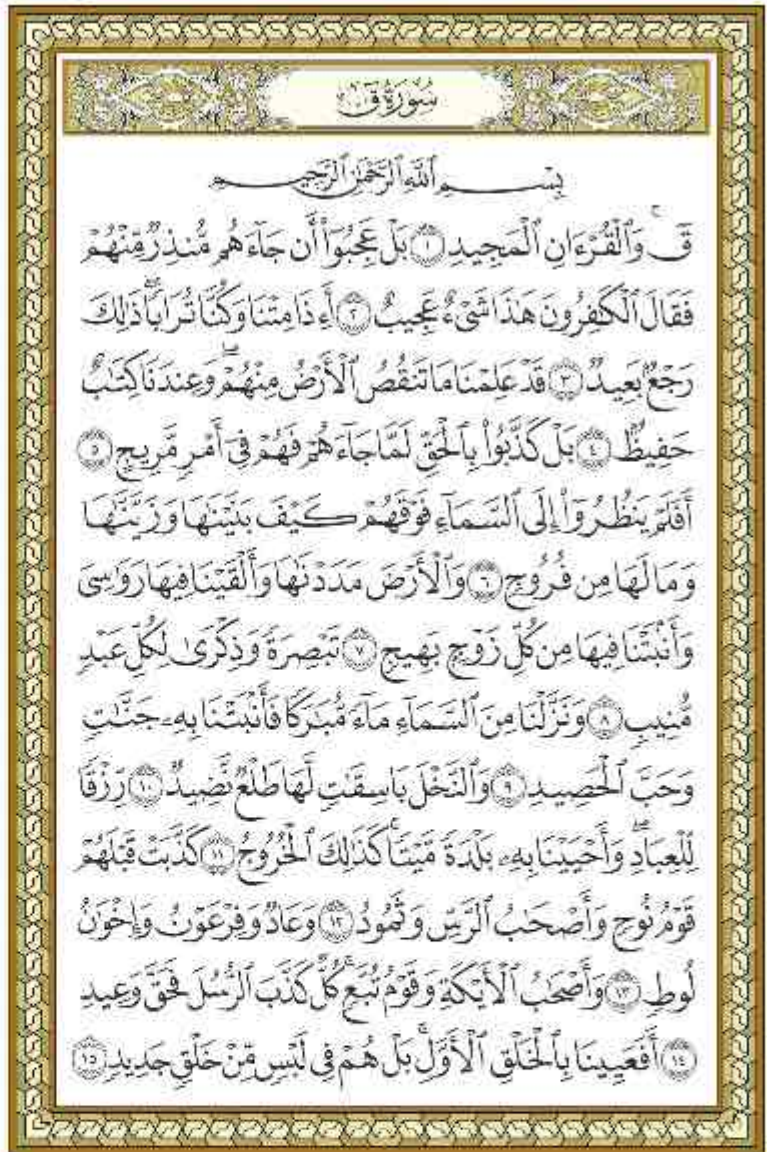 سُورَةُ ق
بِسْمِ ٱللَّهِ ٱلرَّحْمَٰنِ ٱلرَّحِيمِ
قٓۚ وَٱلْقُرْءَانِ ٱلْمَجِيدِ ١ بَلْ عَجِبُوٓا۟ أَن جَآءَهُم مُّنذِرٌ مِّنْهُمْ
فَقَالَ ٱلْكَٰفِرُونَ هَٰذَا شَىْءٌ عَجِيبٌ ٢ أَءِذَا مِتْنَا وَكُنَّا تُرَابًاۖ ذَٰلِكَ
رَجْعٌۢ بَعِيدٌ ٣ قَدْ عَلِمْنَا مَا تَنقُصُ ٱلْأَرْضُ مِنْهُمْۖ وَعِندَنَا كِتَٰبٌ
حَفِيظٌۢ ٤ بَلْ كَذَّبُوا۟ بِٱلْحَقِّ لَمَّا جَآءَهُمْ فَهُمْ فِىٓ أَمْرٍ مَّرِيجٍ ٥
أَفَلَمْ يَنظُرُوٓا۟ إِلَى ٱلسَّمَآءِ فَوْقَهُمْ كَيْفَ بَنَيْنَٰهَا وَزَيَّنَّٰهَا
وَمَا لَهَا مِن فُرُوجٍ ٦ وَٱلْأَرْضَ مَدَدْنَٰهَا وَأَلْقَيْنَا فِيهَا رَوَٰسِىَ
وَأَنۢبَتْنَا فِيهَا مِن كُلِّ زَوْجٍۭ بَهِيجٍ ٧ تَبْصِرَةً وَذِكْرَىٰ لِكُلِّ عَبْدٍ
مُّنِيبٍ ٨ وَنَزَّلْنَا مِنَ ٱلسَّمَآءِ مَآءً مُّبَٰرَكًا فَأَنۢبَتْنَا بِهِۦ جَنَّٰتٍ
وَحَبَّ ٱلْحَصِيدِ ٩ وَٱلنَّخْلَ بَاسِقَٰتٍ لَّهَا طَلْعٌ نَّضِيدٌ ١٠ رِّزْقًا
لِّلْعِبَادِۖ وَأَحْيَيْنَا بِهِۦ بَلْدَةً مَّيْتًاۚ كَذَٰلِكَ ٱلْخُرُوجُ ١١ كَذَّبَتْ قَبْلَهُمْ
قَوْمُ نُوحٍ وَأَصْحَٰبُ ٱلرَّسِّ وَثَمُودُ ١٢ وَعَادٌ وَفِرْعَوْنُ وَإِخْوَٰنُ
لُوطٍ ١٣ وَأَصْحَٰبُ ٱلْأَيْكَةِ وَقَوْمُ تُبَّعٍۚ كُلٌّ كَذَّبَ ٱلرُّسُلَ فَحَقَّ وَعِيدِ
١٤ أَفَعَيِينَا بِٱلْخَلْقِ ٱلْأَوَّلِۚ بَلْ هُمْ فِى لَبْسٍ مِّنْ خَلْقٍ جَدِيدٍ ١٥